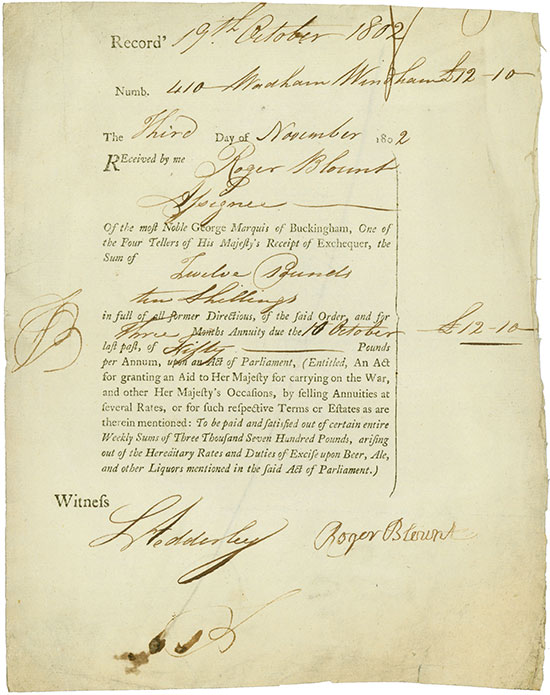 Record' 19th October 1802
Numb. 410 Wadham Windham £12-10
The Third Day of November 1802
REceived by me Roger Blount
Assignee
Of the moſt Noble George Marquis of Buckingham, One of
the Four Tellers of His Majeſty's Receipt of Exchequer, the
Sum of
Twelve Pounds
ten Shillings
in full of all former Directions, of the ſaid Order, and for
Three Months Annuity due the 10 October £12-10
laſt paſt, of Fifty Pounds
per Annum, upon an Act of Parliament, (Entitled, An Act
for granting an Aid to Her Majeſty for carrying on the War,
and other Her Majeſty's Occaſions, by ſelling Annuities at
ſeveral Rates, or for ſuch reſpective Terms or Eſtates as are
therein mentioned: To be paid and ſatisfied out of certain entire
Weekly Sums of Three Thouſand Seven Hundred Pounds, ariſing
out of the Hereditary Rates and Duties of Exciſe upon Beer, Ale,
and other Liquors mentioned in the ſaid Act of Parliament.)
Witneſs
Roger Blount